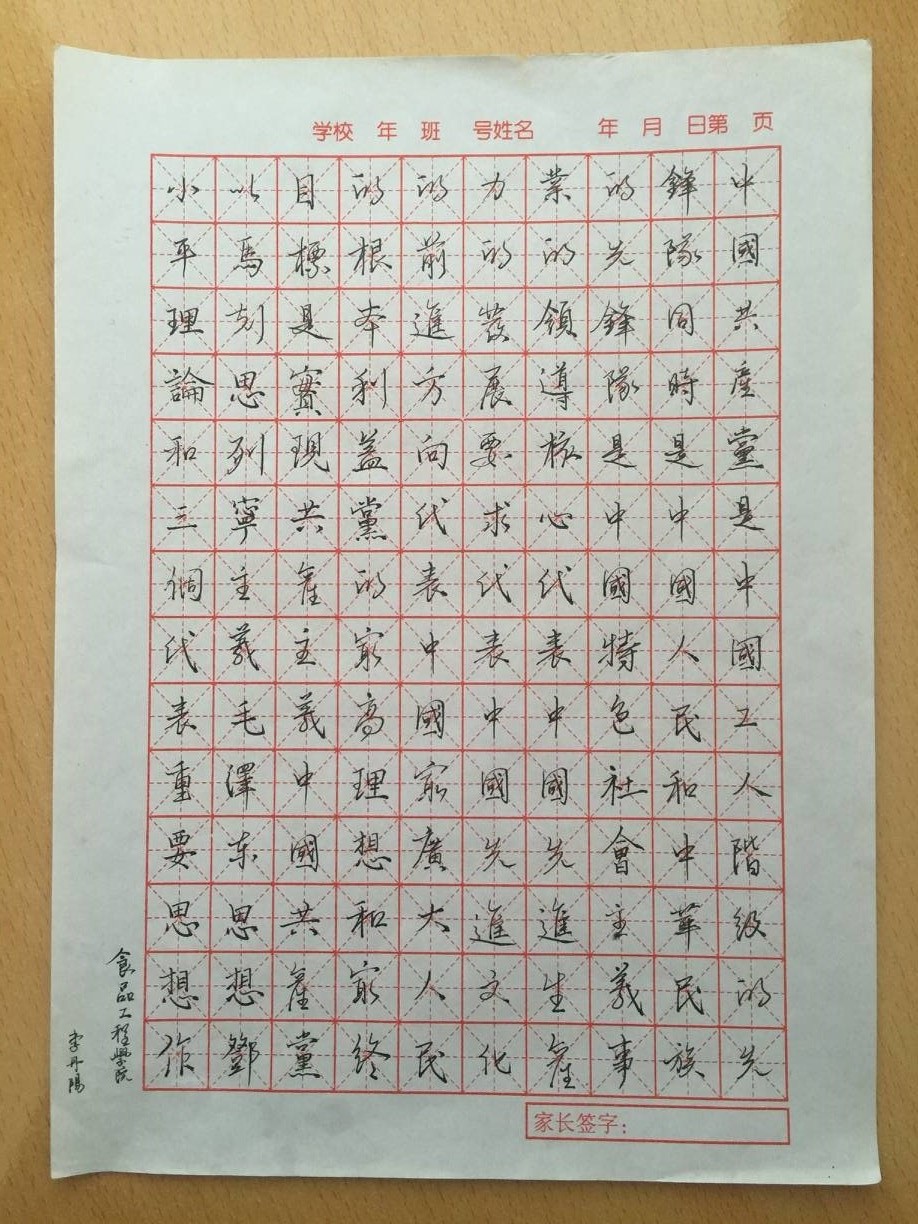 学校 年 班 号姓名 年 月 日第 页
中國共産黨是中國工人階級的先
鋒隊同時是中國人民和中華民族
的先鋒隊是中國特色社會主義事
業的領導核心代表中國先進生産
力的發展要求代表中國先進文化
的前進方向代表中國最廣大人民
的根本利益黨的最高理想和最終
目標是實現共産主義中國共産黨
以馬刻思列寧主義毛澤东思想鄧
小平理論和三個代表重要思想作
食品工程學院
李丹陽
家长签字: